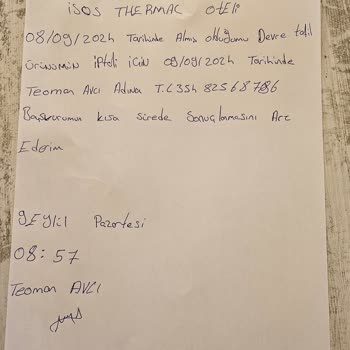 isos THERMAL oteli
08/09/2024 Tarihinde Almış olduğumu Devre tatil
Ürünümün iPtali için 09/09/2024 Tarihinde
Teoman Avcı Adına T.C 354 825 68 786
Başvurumun kısa sürede Sonuçlanmasını Arz
Ederim
9 EYlül Pazartesi
08:57
Teoman AVCI